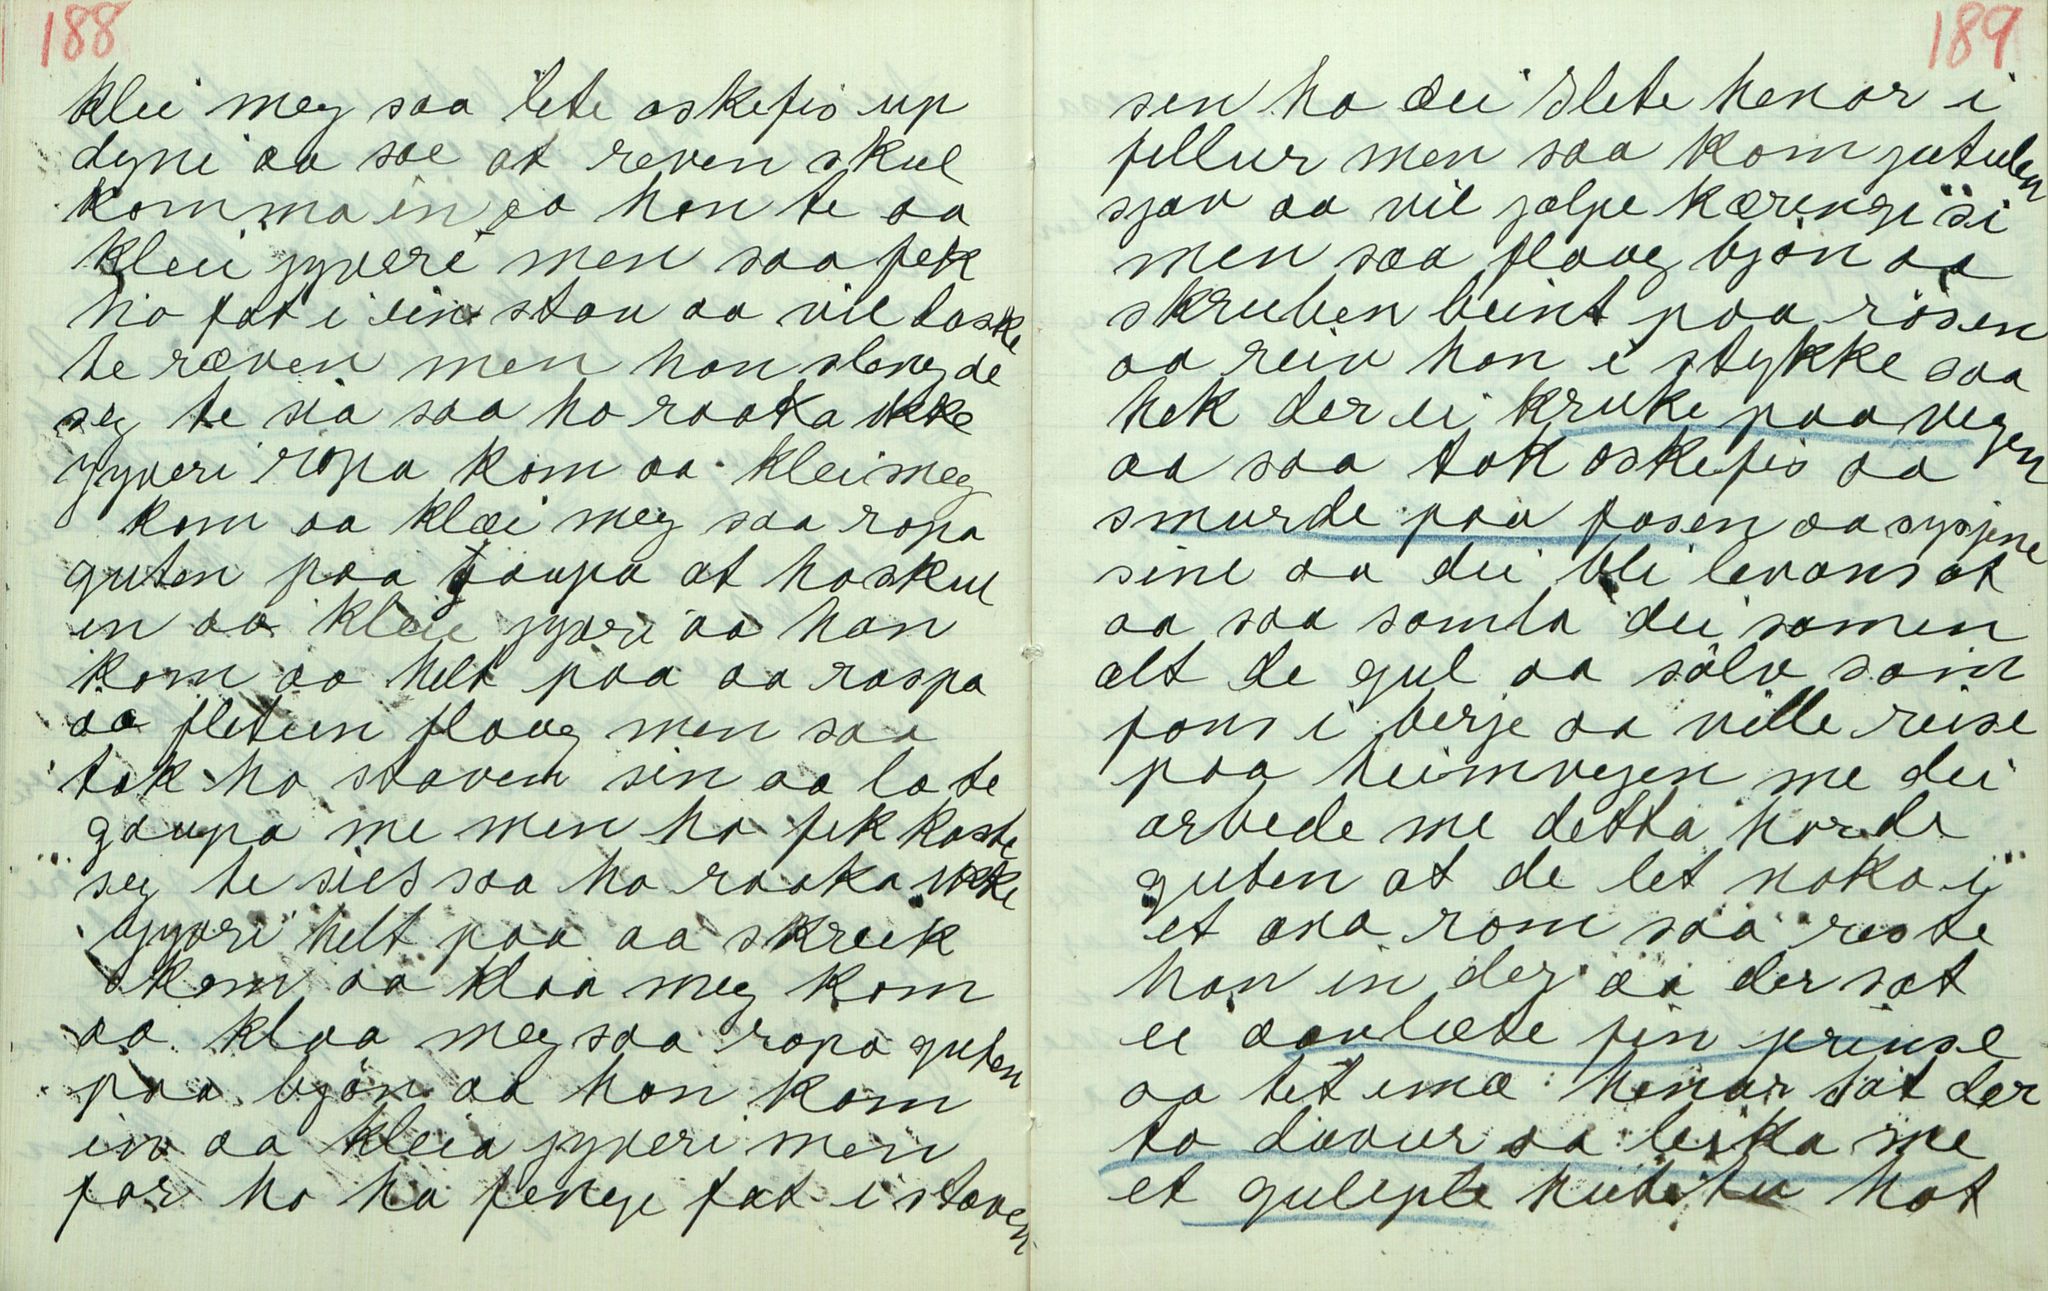 188
klei meg saa lete askefis up
dyni aa sae at reven skul
komma in aa han te aa
kleii gyveri men saa fek
ho fat i ein stav aa vil daske
te ræven men han slengde
seg te sia saa ho raaka ikke
gyveri ropa kom aa kleimeg
kom aa klæi meg saa ropa
guten paa gaupa at ho skul
in aa kleie gyveri aa han
kom aa helt paa aa raspa
aa fleteen flaug men saa
tok ho staven sin aa la te
gaupa me men ho fek kaste
seg te sies saa ho raaka ikke
gyveri helt paa aa skreik
kom aa klaa meg kom
aa klaa meg saa ropa guten
paa bjøn aa han kom
inn aa kleia gyveri men
før ho ha fengje fat i staven
189
sen ha dei slete henar i
fillur men saa kom jutulen
sjøv aa vil jølpe kæringi si
men saa flaug bjøn aa
skruben beint paa rosen
aa reiv han i stykke saa
hek der ei kruke paa vegen
aa saa tok askefis aa
smurde paa fosen aa sysjene
sine aa dei blei levans at
aa saa samla dei samen
alt de gul aa sølv som
fans i berje aa ville reise
paa heimvegen me dei
arbede me detta hørde
guten at de let noko i
et ana rom saa reste
han in der aa der sat
ei aavlæte fin prinse
aa tet imæ henar sat der
to duvur aa leika me
et guleple hut hat